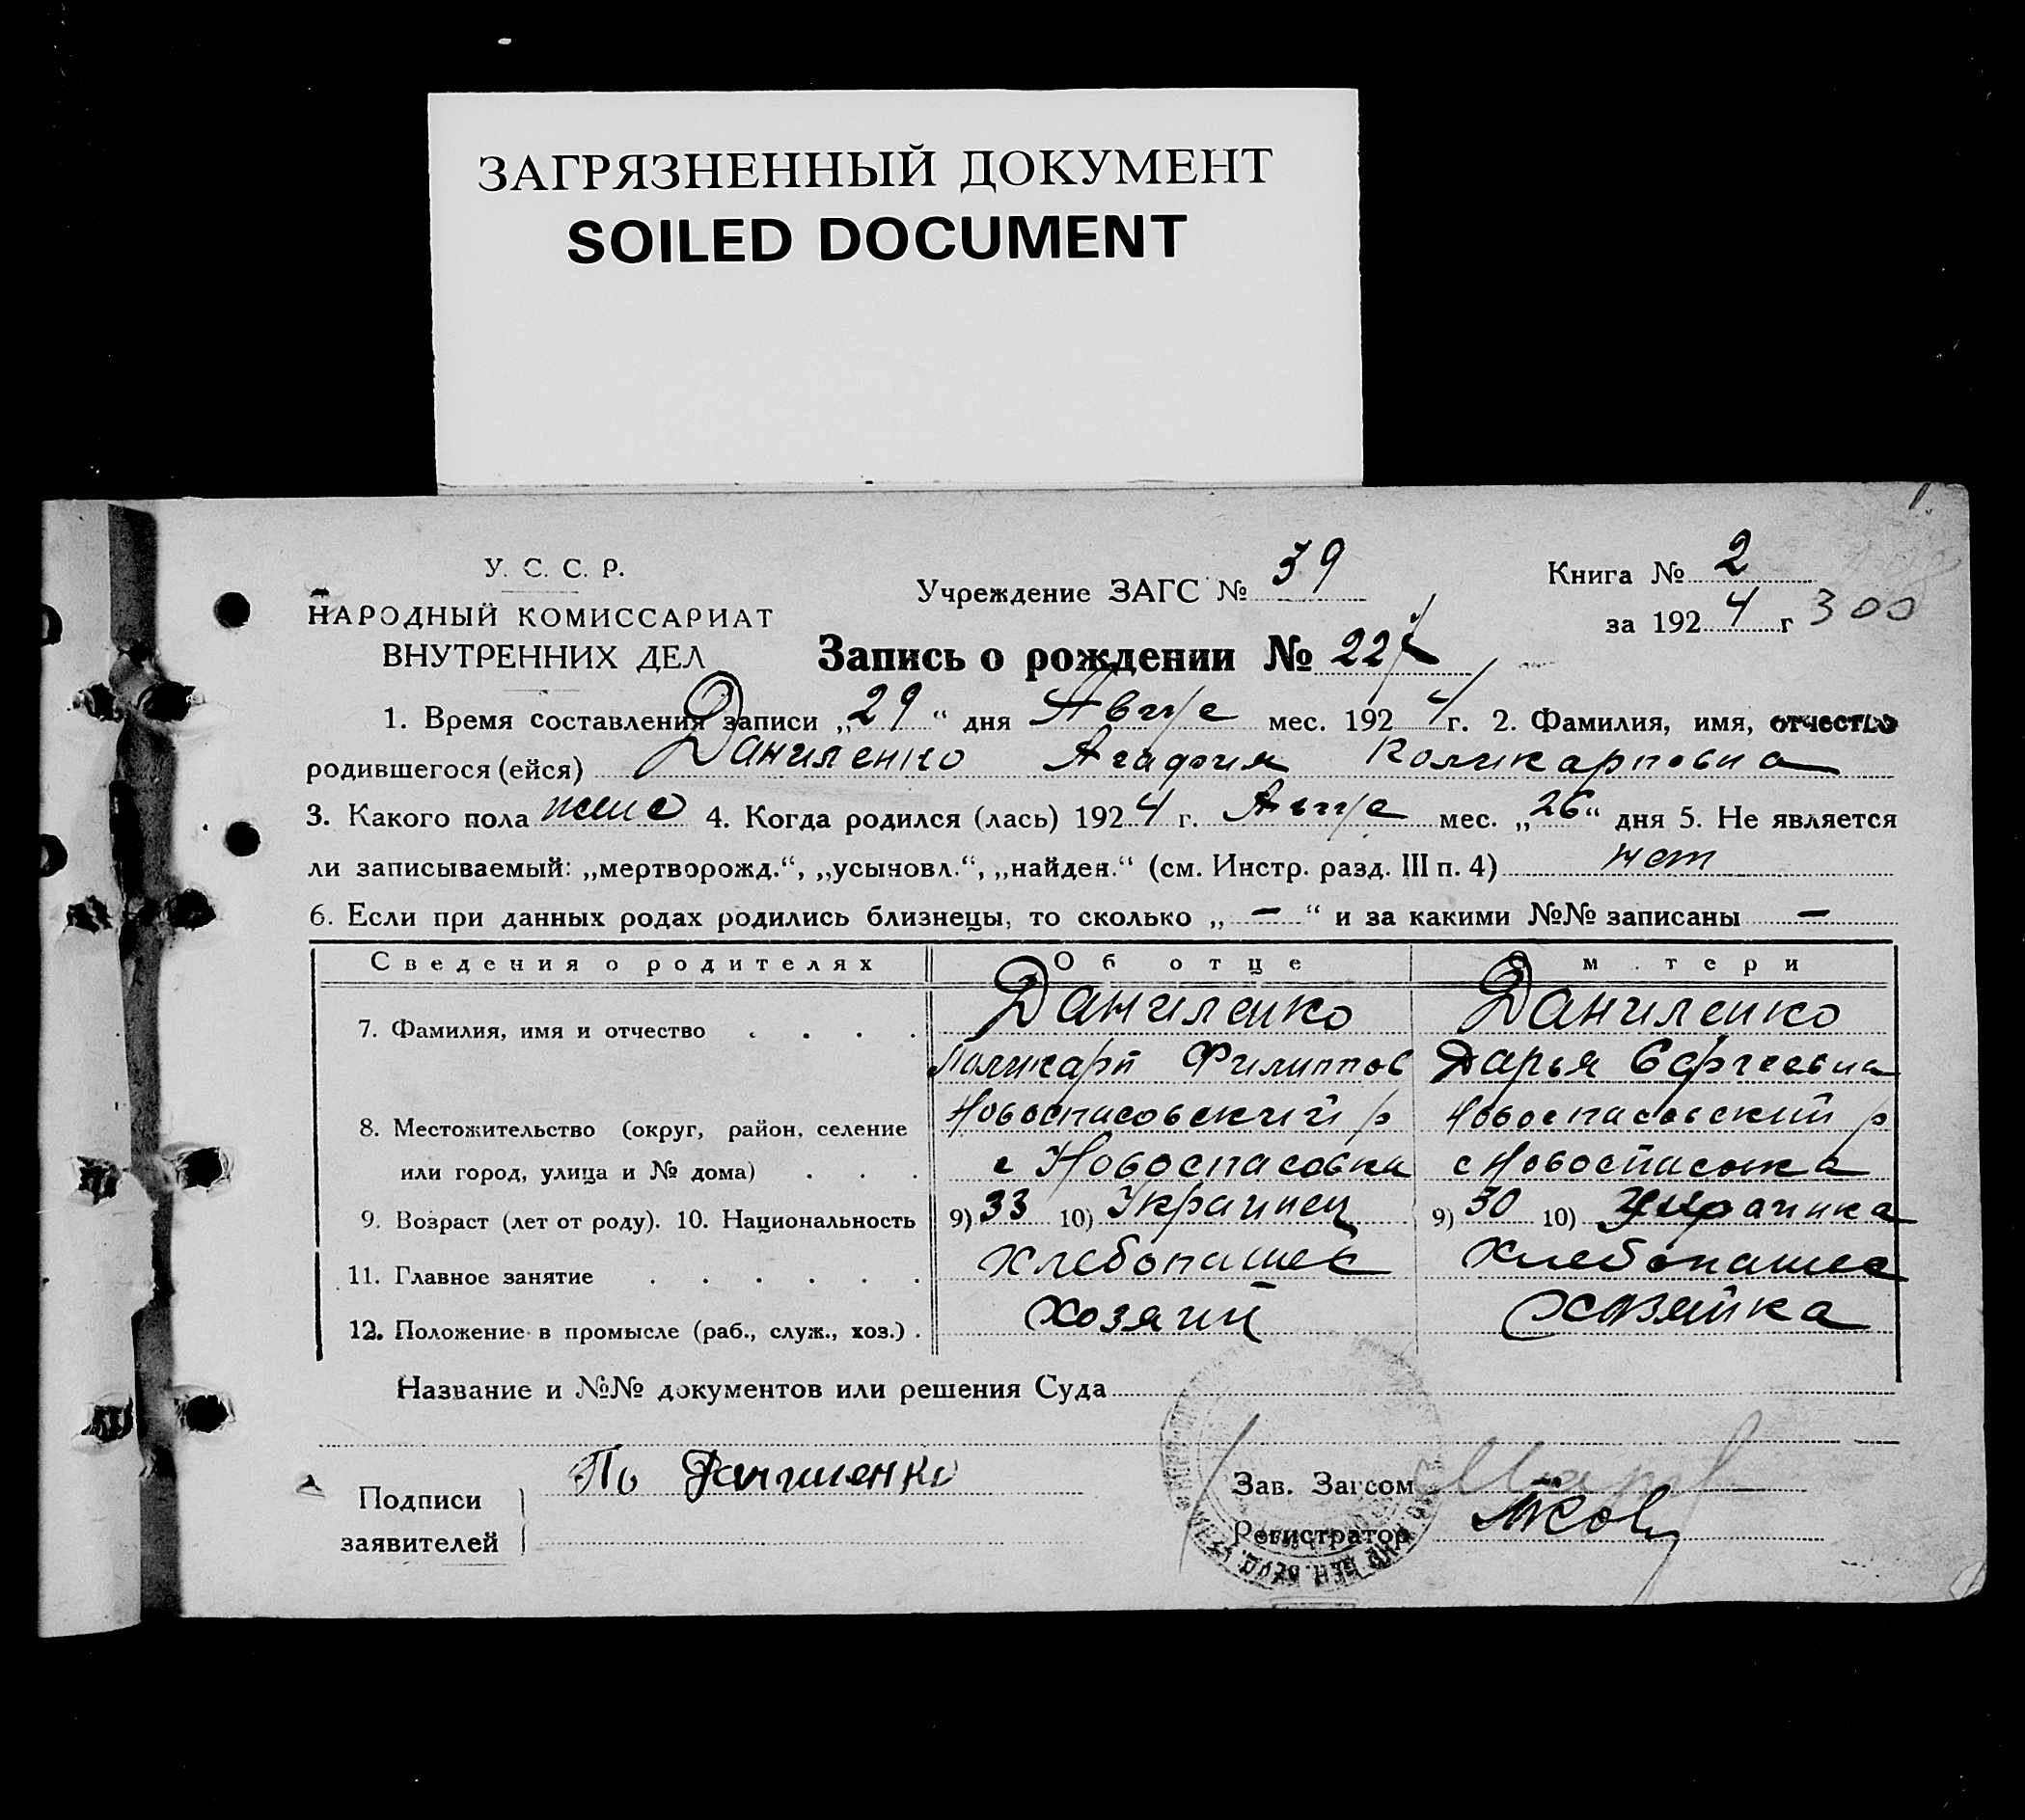 ЗАГРЯЗНЕННЫЙ ДОКУМЕНТ
SOILED DOCUMENT
У. С. С. Р.
НАРОДНЫЙ КОМИССАРИАТ
ВНУТРЕННИХ ДЕЛ
Учреждение ЗАГС № 39
Книга № 2
за 1924 г 300
Запись о рождении №
1. Время составления записи „29“ дня мес. 1924 г. 2. Фамилия, имя, отчество
родившегося (ейся) Даниленко Агафия Поликарповна
3. Какого пола жен 4. Когда родился (лась) 1924 г. мес. „26“ дня 5. Не является
ли записываемый: „мертворожд.“, „усыновл.“, „найден.“ (см. Инстр. разд. III п. 4) нет
6. Если при данных родах родились близнецы, то сколько „ — “ и за какими №№ записаны —
Сведения о родителях Об отце О м тери
7. Фамилия, имя и отчество . . . . Даниленко Даниленко
Поликарп Филиппов Дарья Сергеевна
8. Местожительство (округ, район, селение Новоспасовский р Новоспасовский р
или город, улица и № дома) . . . с Новоспасовка с Новоспасовка
9. Возраст (лет от роду). 10. Национальность 9) 33 10) Украинец 9) 30 10) Украинка
11. Главное занятие . . . . . . Хлебопашец Хлебопашец
12. Положение в промысле (раб., служ., хоз.) . Хозяин Хозяйка
Название и №№ документов или решения Суда
Подписи
заявителей
Даниленко
Зав. Загсом
Регистратор